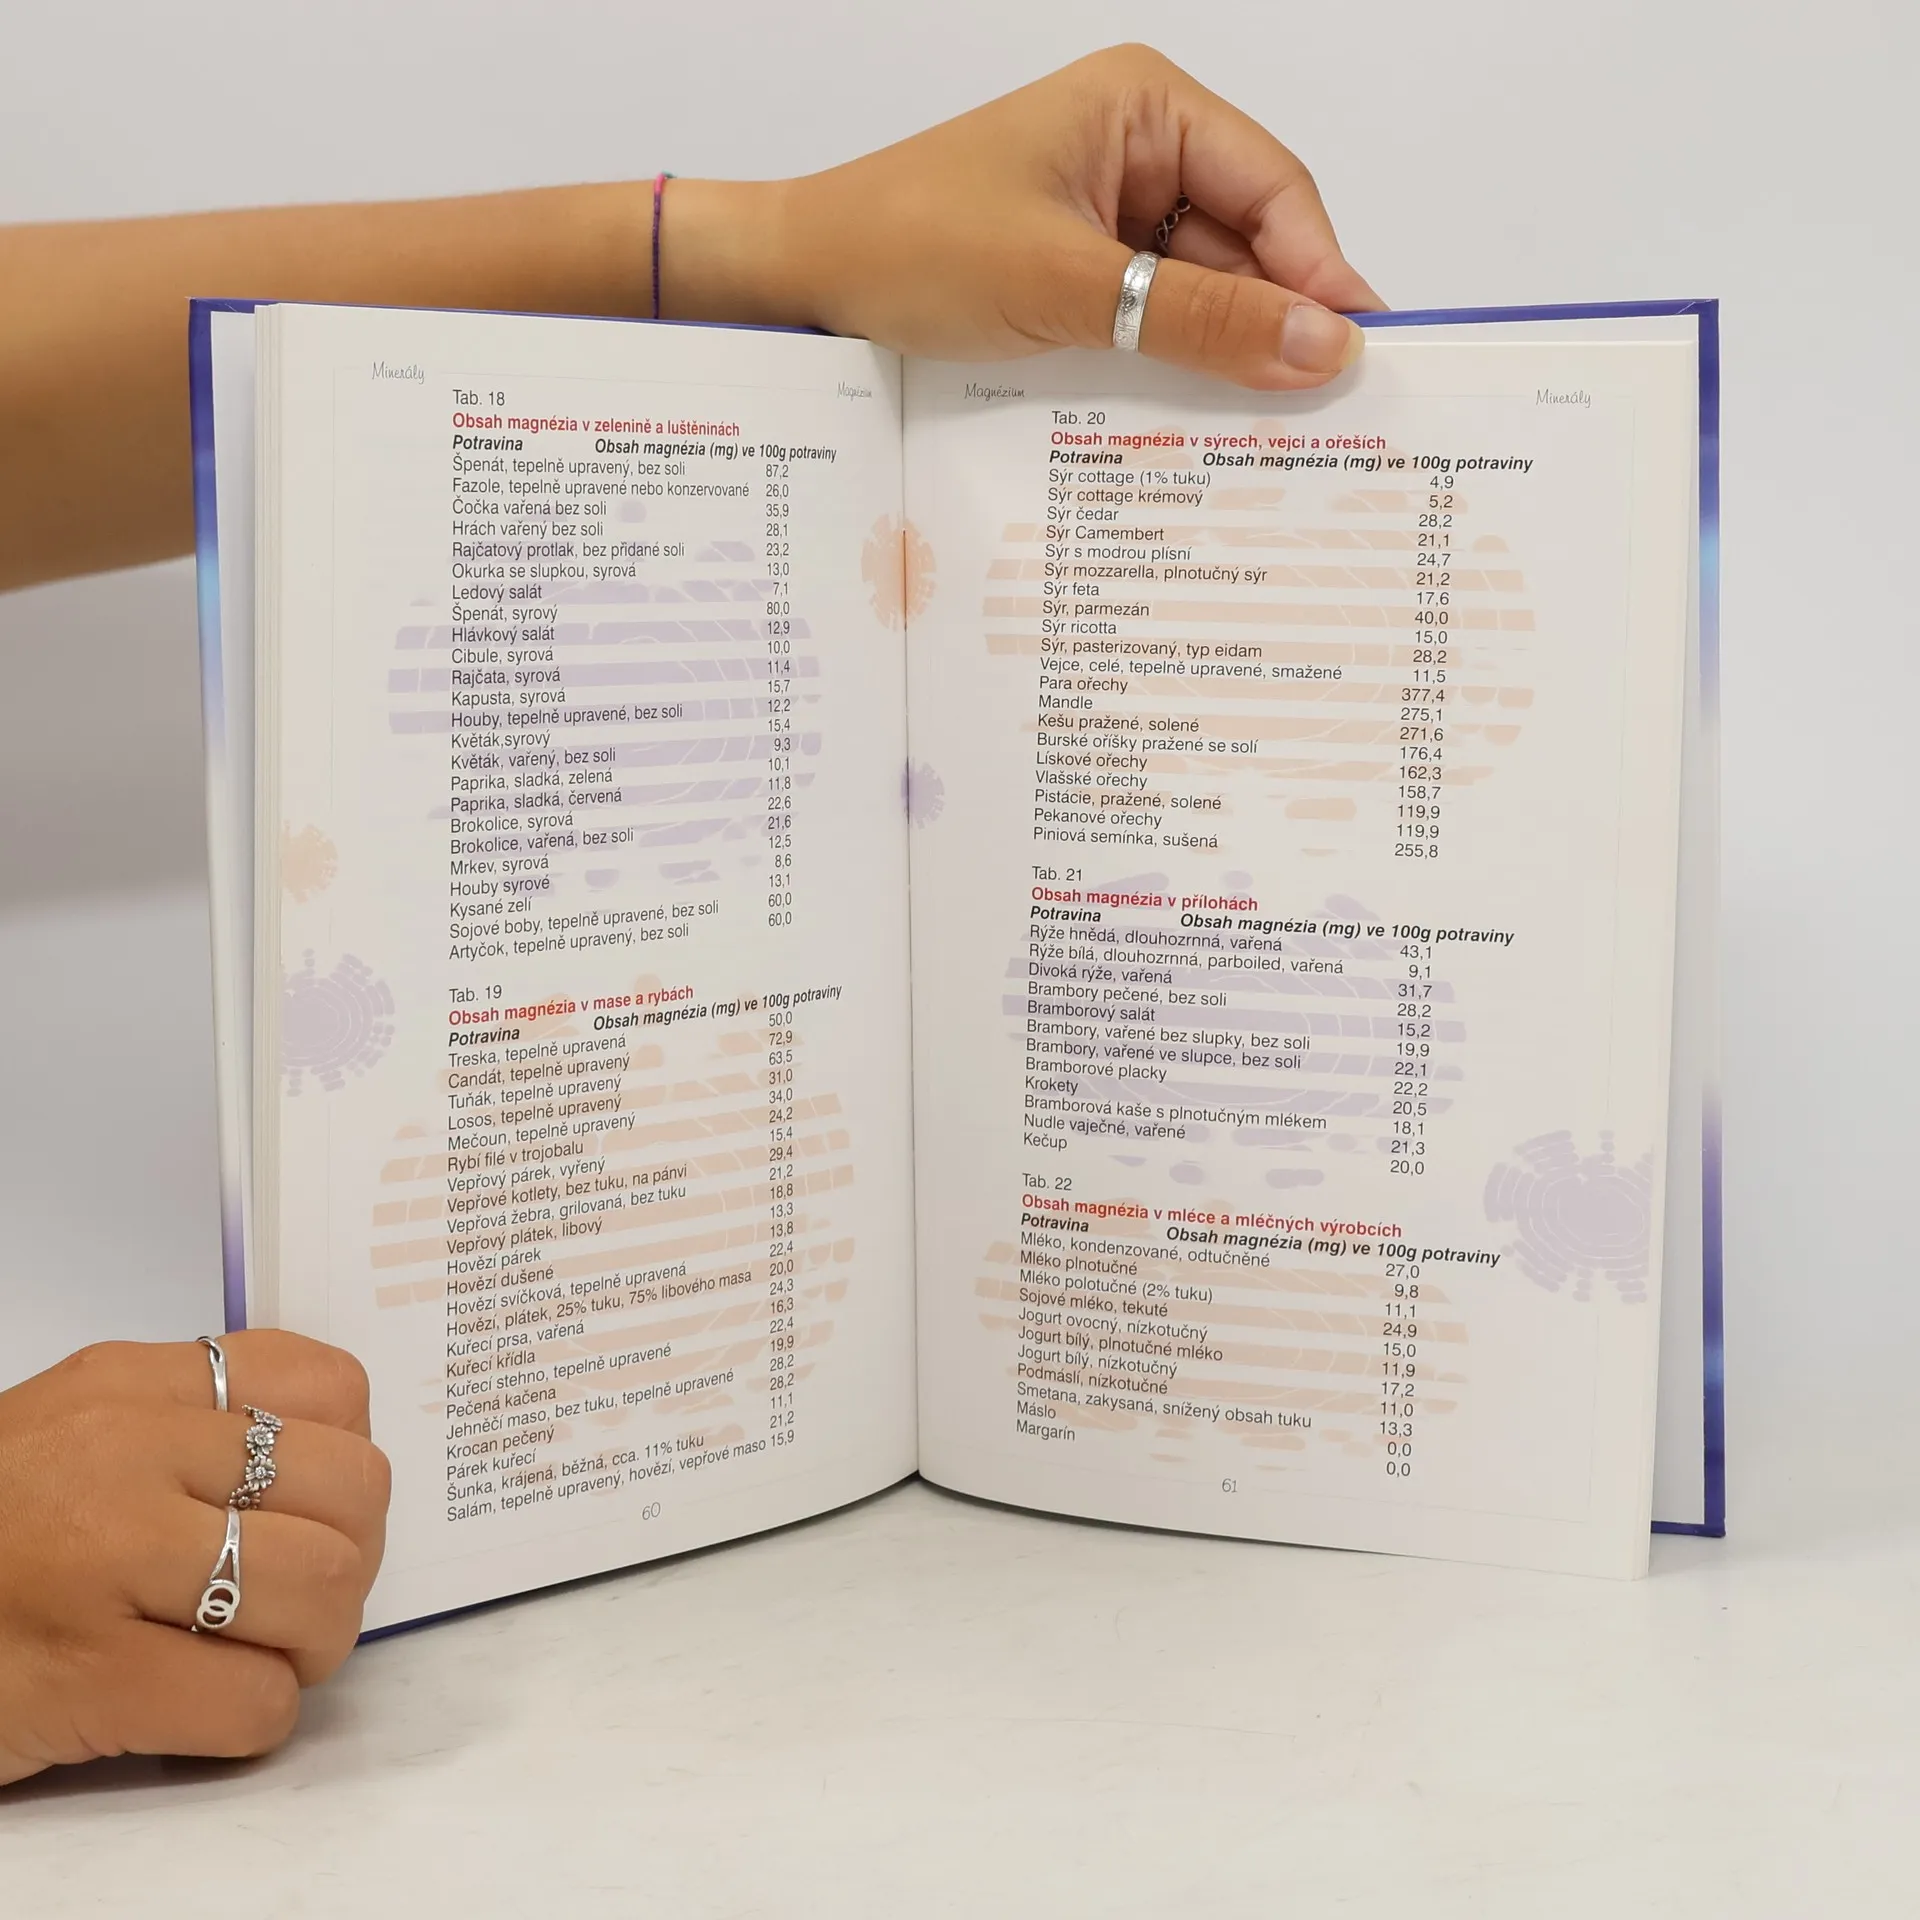 Minerály
Magnézium
Tab. 18
Obsah magnézia v zelenině a luštěninách
Potravina Obsah magnézia (mg) ve 100g potraviny
Špenát, tepelně upravený, bez soli 87,2
Fazole, tepelně upravené nebo konzervované 26,0
Čočka vařená bez soli 35,9
Hrách vařený bez soli 28,1
Rajčatový protlak, bez přidané soli 23,2
Okurka se slupkou, syrová 13,0
Ledový salát 7,1
Špenát, syrový 80,0
Hlávkový salát 12,9
Cibule, syrová 10,0
Rajčata, syrová 11,4
Kapusta, syrová 15,7
Houby, tepelně upravené, bez soli 12,2
Květák,syrový 15,4
Květák, vařený, bez soli 9,3
Paprika, sladká, zelená 10,1
Paprika, sladká, červená 11,8
Brokolice, syrová 22,6
Brokolice, vařená, bez soli 21,6
Mrkev, syrová 12,5
Houby syrové 8,6
Kysané zelí 13,1
Sojové boby, tepelně upravené, bez soli 60,0
Artyčok, tepelně upravený, bez soli 60,0
Tab. 19
Obsah magnézia v mase a rybách
Potravina Obsah magnézia (mg) ve 100g potraviny
Treska, tepelně upravená 50,0
Candát, tepelně upravený 72,9
Tuňák, tepelně upravený 63,5
Losos, tepelně upravený 31,0
Mečoun, tepelně upravený 34,0
Rybí filé v trojobalu 24,2
Vepřový párek, vyřený 15,4
Vepřové kotlety, bez tuku, na pánvi 29,4
Vepřová žebra, grilovaná, bez tuku 21,2
Vepřový plátek, libový 18,8
Hovězí párek 13,3
Hovězí dušené 13,8
Hovězí svíčková, tepelně upravená 22,4
Hovězí, plátek, 25% tuku, 75% libového masa 20,0
Kuřecí prsa, vařená 24,3
Kuřecí křídla 16,3
Kuřecí stehno, tepelně upravené 22,4
Pečená kačena 19,9
Jehněčí maso, bez tuku, tepelně upravené 28,2
Krocan pečený 28,2
Párek kuřecí 11,1
Šunka, krájená, běžná, cca. 11% tuku 21,2
Salám, tepelně upravený, hovězí, vepřové maso 15,9
60
Magnézium
Minerály
Tab. 20
Obsah magnézia v sýrech, vejci a ořeších
Potravina Obsah magnézia (mg) ve 100g potraviny
Sýr cottage (1% tuku) 4,9
Sýr cottage krémový 5,2
Sýr čedar 28,2
Sýr Camembert 21,1
Sýr s modrou plísní 24,7
Sýr mozzarella, plnotučný sýr 21,2
Sýr feta 17,6
Sýr, parmezán 40,0
Sýr ricotta 15,0
Sýr, pasterizovaný, typ eidam 28,2
Vejce, celé, tepelně upravené, smažené 11,5
Para ořechy 377,4
Mandle 275,1
Kešu pražené, solené 271,6
Burské oříšky pražené se solí 176,4
Lískové ořechy 162,3
Vlašské ořechy 158,7
Pistácie, pražené, solené 119,9
Pekanové ořechy 119,9
Piniová semínka, sušená 255,8
Tab. 21
Obsah magnézia v přílohách
Potravina Obsah magnézia (mg) ve 100g potraviny
Rýže hnědá, dlouhozrnná, vařená 43,1
Rýže bílá, dlouhozrnná, parboiled, vařená 9,1
Divoká rýže, vařená 31,7
Brambory pečené, bez soli 28,2
Bramborový salát 15,2
Brambory, vařené bez slupky, bez soli 19,9
Brambory, vařené ve slupce, bez soli 22,1
Bramborové placky 22,2
Krokety 20,5
Bramborová kaše s plnotučným mlékem 18,1
Nudle vaječné, vařené 21,3
Kečup 20,0
Tab. 22
Obsah magnézia v mléce a mléčných výrobcích
Potravina Obsah magnézia (mg) ve 100g potraviny
Mléko, kondenzované, odtučněné 27,0
Mléko plnotučné 9,8
Mléko polotučné (2% tuku) 11,1
Sojové mléko, tekuté 24,9
Jogurt ovocný, nízkotučný 15,0
Jogurt bílý, plnotučné mléko 11,9
Jogurt bílý, nízkotučný 17,2
Podmáslí, nízkotučné 11,0
Smetana, zakysaná, snížený obsah tuku 13,3
Máslo 0,0
Margarín 0,0
61